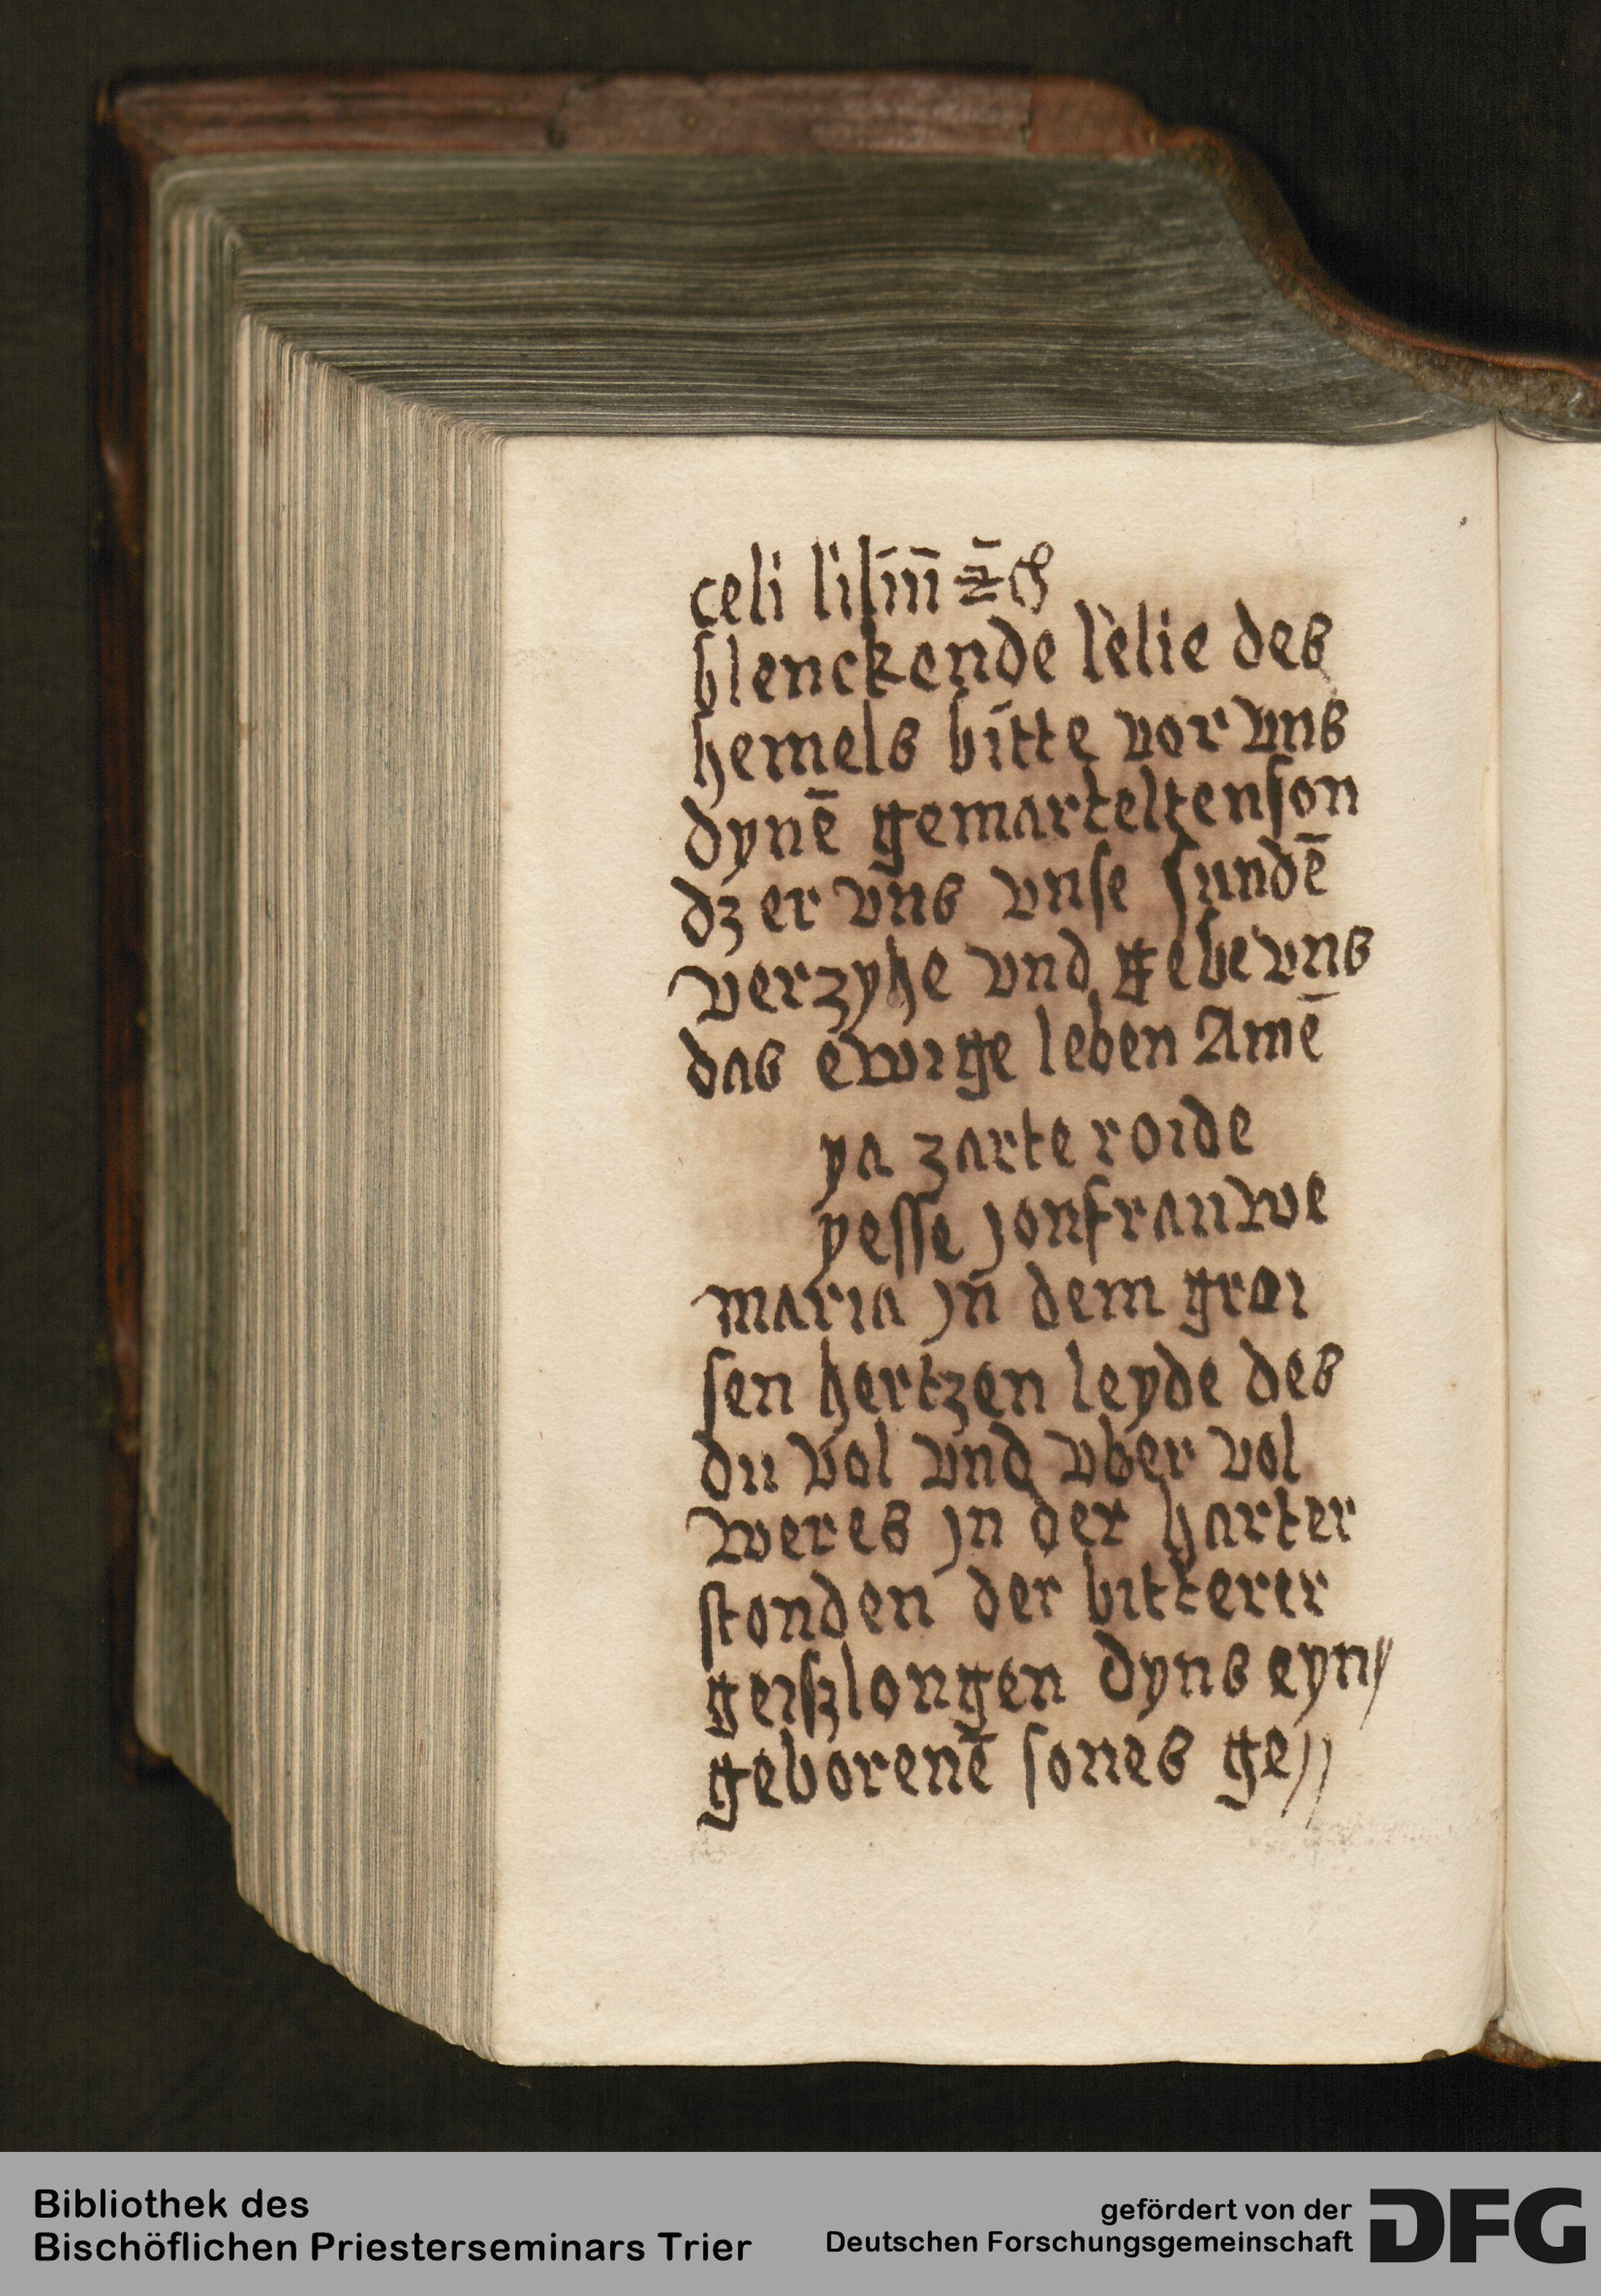 celi liliū
blenckende lelie des
hemels bitte vor vns
dynē gemarteltenson
dz er vns vnse sundē
verzyhe vnd gebe vns
das ewige leben Amē
ya zarte roide
yesse jonfrauwe
maria jn dem groi
sen hertzen leyde des
du vol vnd vber vol
weres jn der harter
stonden der bitterer
geiszlongen dyns eyn//
geborenē sones ge//
Bibliothek des
Bischöflichen Priesterseminars Trier
gefördert von der
Deutschen Forschungsgemeinschaft
DFG